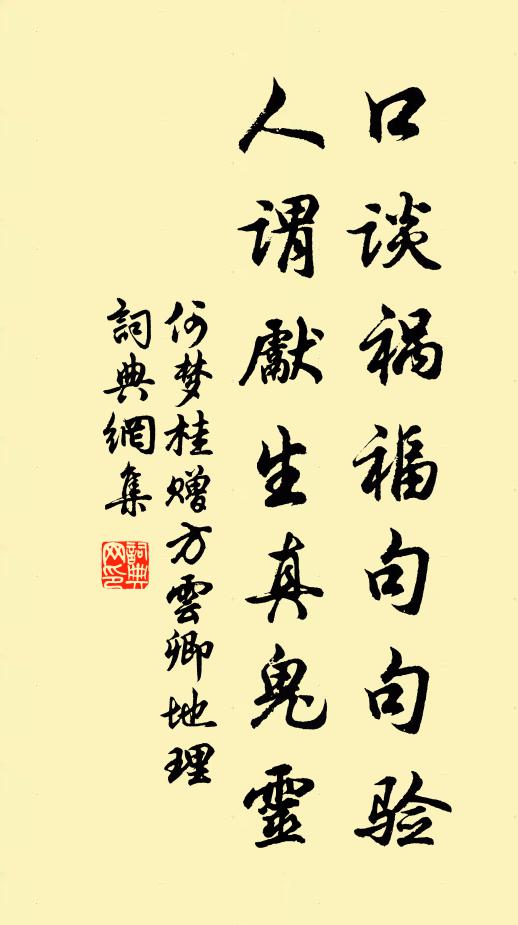 口谈祸福句句验
人谓獻生真鬼靈
何梦桂赠方雲卿地理
詞典網集
詞典网印